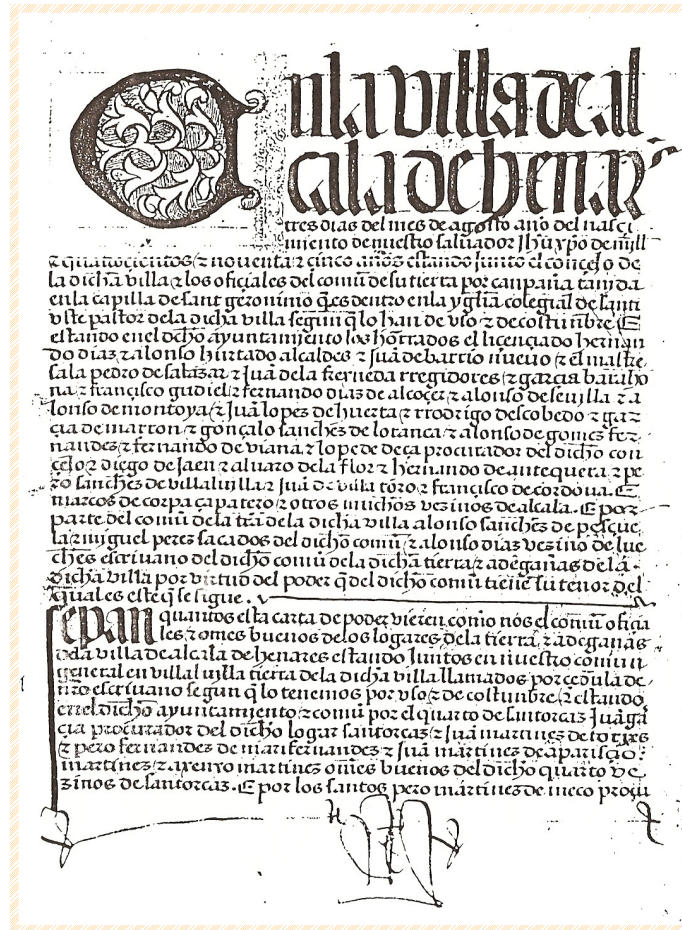 En la villa de al
cala de henar̄s
tres dias del mes de agosto año del nasçi
miento de nuestro saluador Jhū xpō de mill
⁊ quatroçientos ⁊ nouenta ⁊ çinco años estando junto el conçejo de
la dicha villa ⁊ los ofiçiales del comū de su tierra por canpana tañida
en la capilla de sant geronimo q̄ es dentro en la yglīa colegial de santi
uste pastor de la dicha villa segun q̄ lo han de vso ⁊ de costūnbre E
estando en el dicho ayuntamiento los honrrados el liçençiado hernan
do diaz ⁊ alonso hurtado alcaldes ⁊ juā de barrio nueuo ⁊ el maestre
sala pedro de salazar ⁊ Juā de la rregidores ⁊ garçia baraho
na ⁊ françisco gudiel ⁊ fernando diaz de alcoçer ⁊ alonso de seuilla ⁊ a
lonso de montoya ⁊ Juā lopez de huerta ⁊ rrodrigo descobedo ⁊ gar
çia de ⁊ gonçalo sanches de loranca ⁊ alonso de gomes fer
nandes ⁊ fernando de viana ⁊ lope de deça procurador del dicho con
çejo ⁊ diego de jaen ⁊ aluaro de la flor ⁊ hernando de antequera ⁊ pe
ro sanches de villaluilla ⁊ Juā de villa toro ⁊ françisco de cordoua. E
marcos de corpa çapatero ⁊ otros muchos vezinos de alcala. E por
parte del comū de la trr̄a de la dicha villa alonso sanches de pesque
la ⁊ miguel peres sacados del dicho comū ⁊ alonso dias vezino de lue
ches escriuano del dicho comū de la dicha tierra ⁊ adegañas de la
dicha villa por virtud del poder q̄ del dicho comū tiene su tenor del
qual es este q̄ se sigue.
Sepan quantos esta carta de poder vieren como nos el comū ofiçia
les ⁊ omes buenos de los logares de la tierra ⁊ adegañas
de la villa de alcala de henares estando juntos en nuestro comun
general en villaluilla tierra de la dicha villa llamados por çedula de
nrō escriuano segun q̄ lo tenemos por vso ⁊ de costunbre ⁊ estando
en el dicho ayuntamiento ⁊ comū por el quarto de santorcaz Juā gar
çia procurador del dicho logar santorcaz ⁊ Juā martines de torres
⁊ pero fernandes de mari fernandes ⁊ Juā martines de apariçio
martines ⁊ axenxo martines omēs buenos del dicho quarto ve
zinos de santorcaz. E por los santos pero martines de meco procu